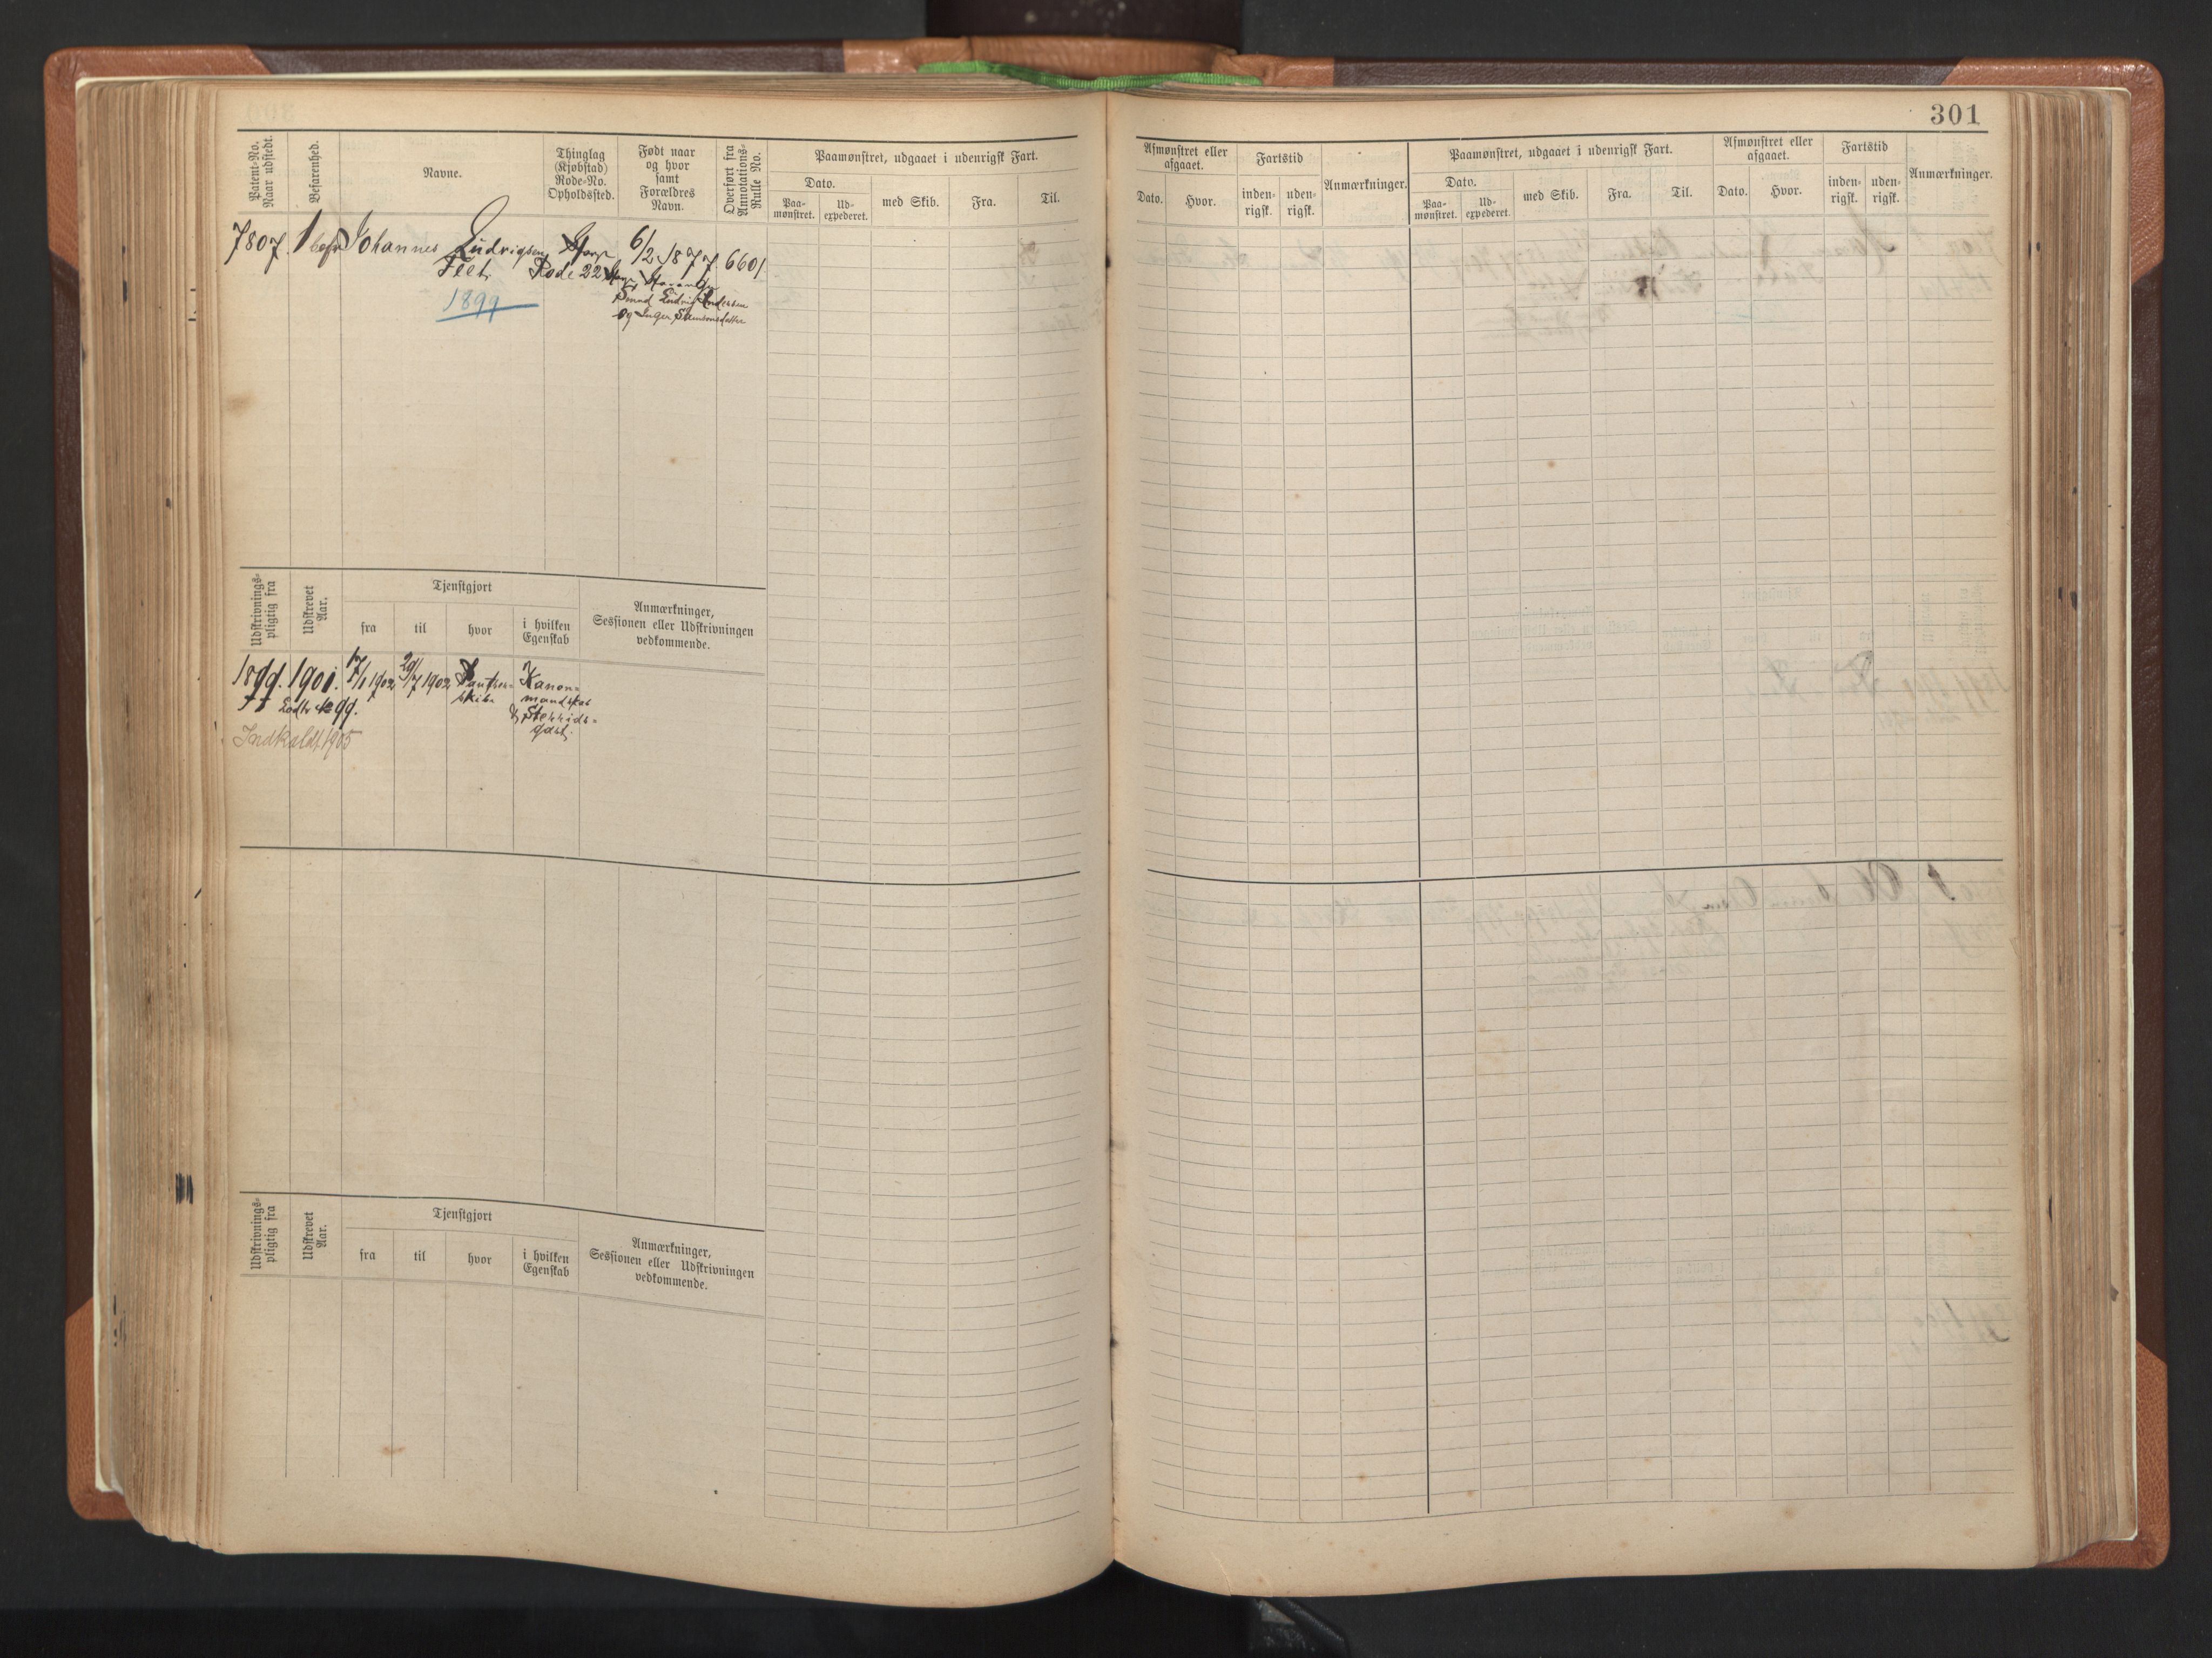 301
Patent-No. Naar udstedt.
Befarenhed.
Navne.
Thinglag (Kjøbstad) Rode-No. Opholdssted.
Født naar og hvor samt Forældres Navn.
Overført fra Annotations-Rulle No.
Paamønstret, udgaaet i udenrigsk Fart.
Dato.
Paa-mønstret.
Ud-expederet.
med Skib.
Fra.
Til.
Afmønstret eller afgaaet.
Dato.
Hvor.
Fartstid
inden-rigsk.
uden-rigsk.
Anmærkninger.
Paamønstret, udgaaet i udenrigsk Fart.
Dato.
Paa-mønstret.
Ud-expederet.
med Skib.
Fra.
Til.
Afmønstret eller afgaaet.
Dato.
Hvor.
Fartstid
inden-rigsk.
uden-rigsk.
Anmærkninger.
7807. 1 Johannes Ludvigsen 6/2 1877 6601
Rode 22
1899
Ludvig Andersen
og Inger Samsonsdatter
Udskrivnings-pligtig fra
Udskrevet Aar.
Tjenstgjort
fra
til
hvor
i hvilken Egenskab
Anmærkninger, Sessionen eller Udskrivningen vedkommende.
1899. 1901. 17/1 1902 29/7 1902 Kanon-
skibe mandskab
Lodtr № 99.
Indkaldt 1905
Udskrivnings-pligtig fra
Udskrevet Aar.
Tjenstgjort
fra
til
hvor
i hvilken Egenskab
Anmærkninger, Sessionen eller Udskrivningen vedkommende.